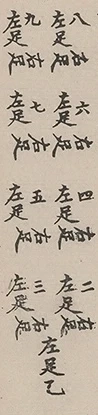 八
左足
右足
九
左足
右足
六
左足
右足
七
左足
右足
四
左足
右足
五
左足
右足
二
左足
右足
三
左足
右足
左足